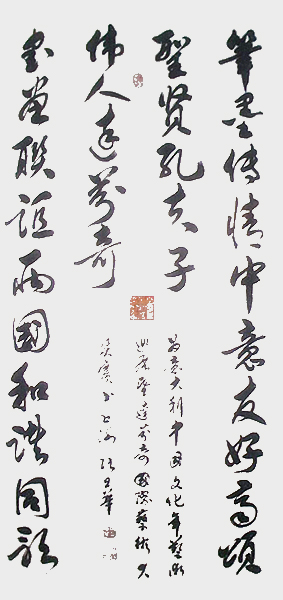 筆墨傳情中意友好高頌
聖贤孔夫子
偉人達芬奇
書畫聯誼兩國和諧同歌
為意大利中国文化年藝術
巡展暨達芬奇國際藝術大
奖賽書上海張
華